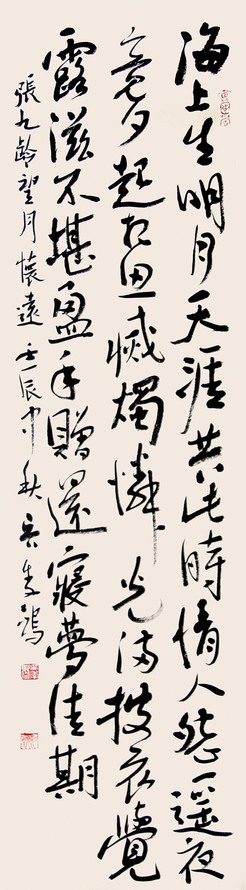 海上生明月天涯共此時情人怨遥夜
竟夕起相思滅燭憐光滿披衣覺
露滋不堪盈手贈還寢夢佳期
張九齡望月懷遠 壬辰中秋